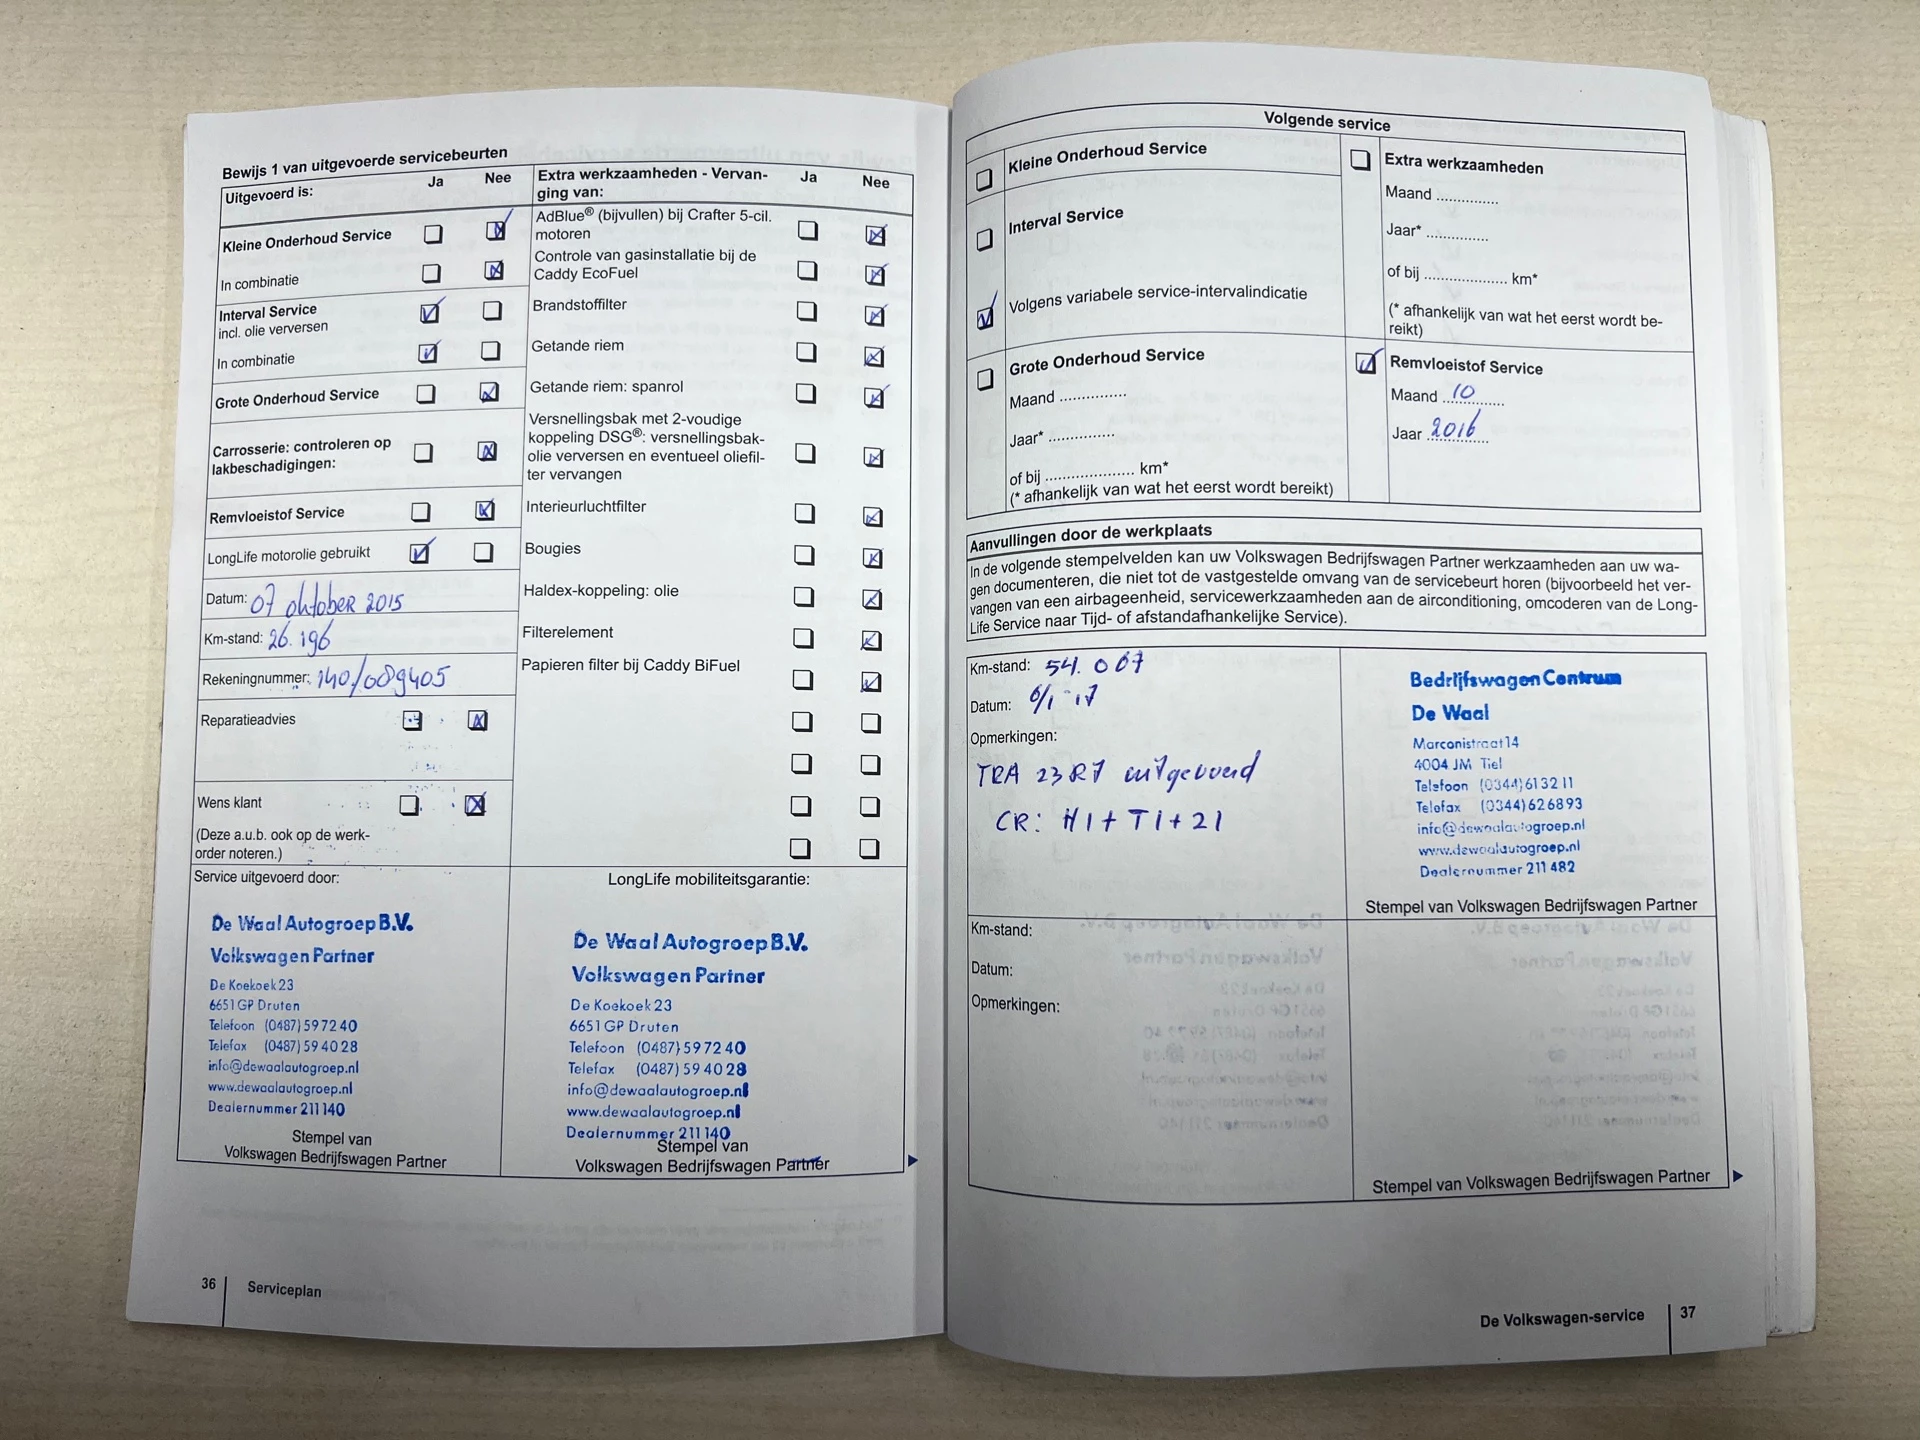 Bewijs 1 van uitgevoerde servicebeurten
Uitgevoerd is:
Ja
Nee
Kleine Onderhoud Service
In combinatie
Interval Service
incl. olie verversen
In combinatie
Grote Onderhoud Service
Carrosserie: controleren op
lakbeschadigingen:
Remvloeistof Service
LongLife motorolie gebruikt
Datum: 07 oktober 2015
Km-stand: 26.196
Rekeningnummer: 140/089405
Reparatieadvies
Wens klant
(Deze a.u.b. ook op de werk-
order noteren.)
Extra werkzaamheden - Vervan-
ging van:
Ja
Nee
AdBlue® (bijvullen) bij Crafter 5-cil.
motoren
Controle van gasinstallatie bij de
Caddy EcoFuel
Brandstoffilter
Getande riem
Getande riem: spanrol
Versnellingsbak met 2-voudige
koppeling DSG®: versnellingsbak-
olie verversen en eventueel oliefil-
ter vervangen
Interieurluchtfilter
Bougies
Haldex-koppeling: olie
Filterelement
Papieren filter bij Caddy BiFuel
Service uitgevoerd door:
De Waal Autogroep B.V.
Volkswagen Partner
De Koekoek 23
6651 GP Druten
Telefoon (0487) 59 72 40
Telefax (0487) 59 40 28
info@dewaalautogroep.nl
www.dewaalautogroep.nl
Dealernummer 211 140
Stempel van
Volkswagen Bedrijfswagen Partner
LongLife mobiliteitsgarantie:
De Waal Autogroep B.V.
Volkswagen Partner
De Koekoek 23
6651 GP Druten
Telefoon (0487) 59 72 40
Telefax (0487) 59 40 28
info@dewaalautogroep.nl
www.dewaalautogroep.nl
Dealernummer 211 140
Stempel van
Volkswagen Bedrijfswagen Partner
36
Serviceplan
Volgende service
Kleine Onderhoud Service
Interval Service
Volgens variabele service-intervalindicatie
Grote Onderhoud Service
Maand ...............
Jaar* ...............
of bij .................... km*
(* afhankelijk van wat het eerst wordt bereikt)
Extra werkzaamheden
Maand ..............
Jaar* ..............
of bij .................. km*
(* afhankelijk van wat het eerst wordt be-
reikt)
Remvloeistof Service
Maand 10
Jaar 2016
Aanvullingen door de werkplaats
In de volgende stempelvelden kan uw Volkswagen Bedrijfswagen Partner werkzaamheden aan uw wa-
gen documenteren, die niet tot de vastgestelde omvang van de servicebeurt horen (bijvoorbeeld het ver-
vangen van een airbageenheid, servicewerkzaamheden aan de airconditioning, omcoderen van de Long-
Life Service naar Tijd- of afstandafhankelijke Service).
Km-stand: 54.067
Datum: 6/1-17
Opmerkingen:
TRA 23R7 uitgevoerd
CR: H1+T1+21
Bedrijfswagen Centrum
De Waal
Marconistraat 14
4004 JM Tiel
Telefoon (0344) 613211
Telefax (0344) 626893
info@dewaalautogroep.nl
www.dewaalautogroep.nl
Dealernummer 211 482
Stempel van Volkswagen Bedrijfswagen Partner
Km-stand:
Datum:
Opmerkingen:
Stempel van Volkswagen Bedrijfswagen Partner
De Volkswagen-service
37